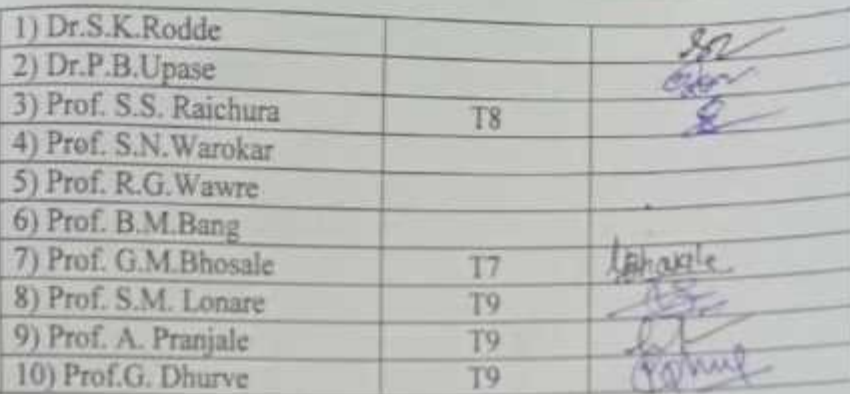 1) Dr.S.K.Rodde
2) Dr.P.B.Upase
3) Prof. S.S. Raichura T8
4) Prof. S.N.Warokar
5) Prof. R.G.Wawre
6) Prof. B.M.Bang
7) Prof. G.M.Bhosale T7
8) Prof. S.M. Lonare T9
9) Prof. A. Pranjale T9
10) Prof.G. Dhurve T9